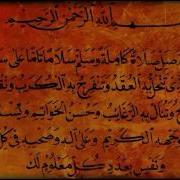 بسم الله الرحمن الرحيم
صل صلاة كاملة وسلم سلاما تاما على
تنحل به العقد وتنفرج به الكرب
وتنال به الرغائب وحسن الخواتيم
بوجهه الكريم وعلى آله وصحبه في كل
ونفس بعدد كل معلوم لك